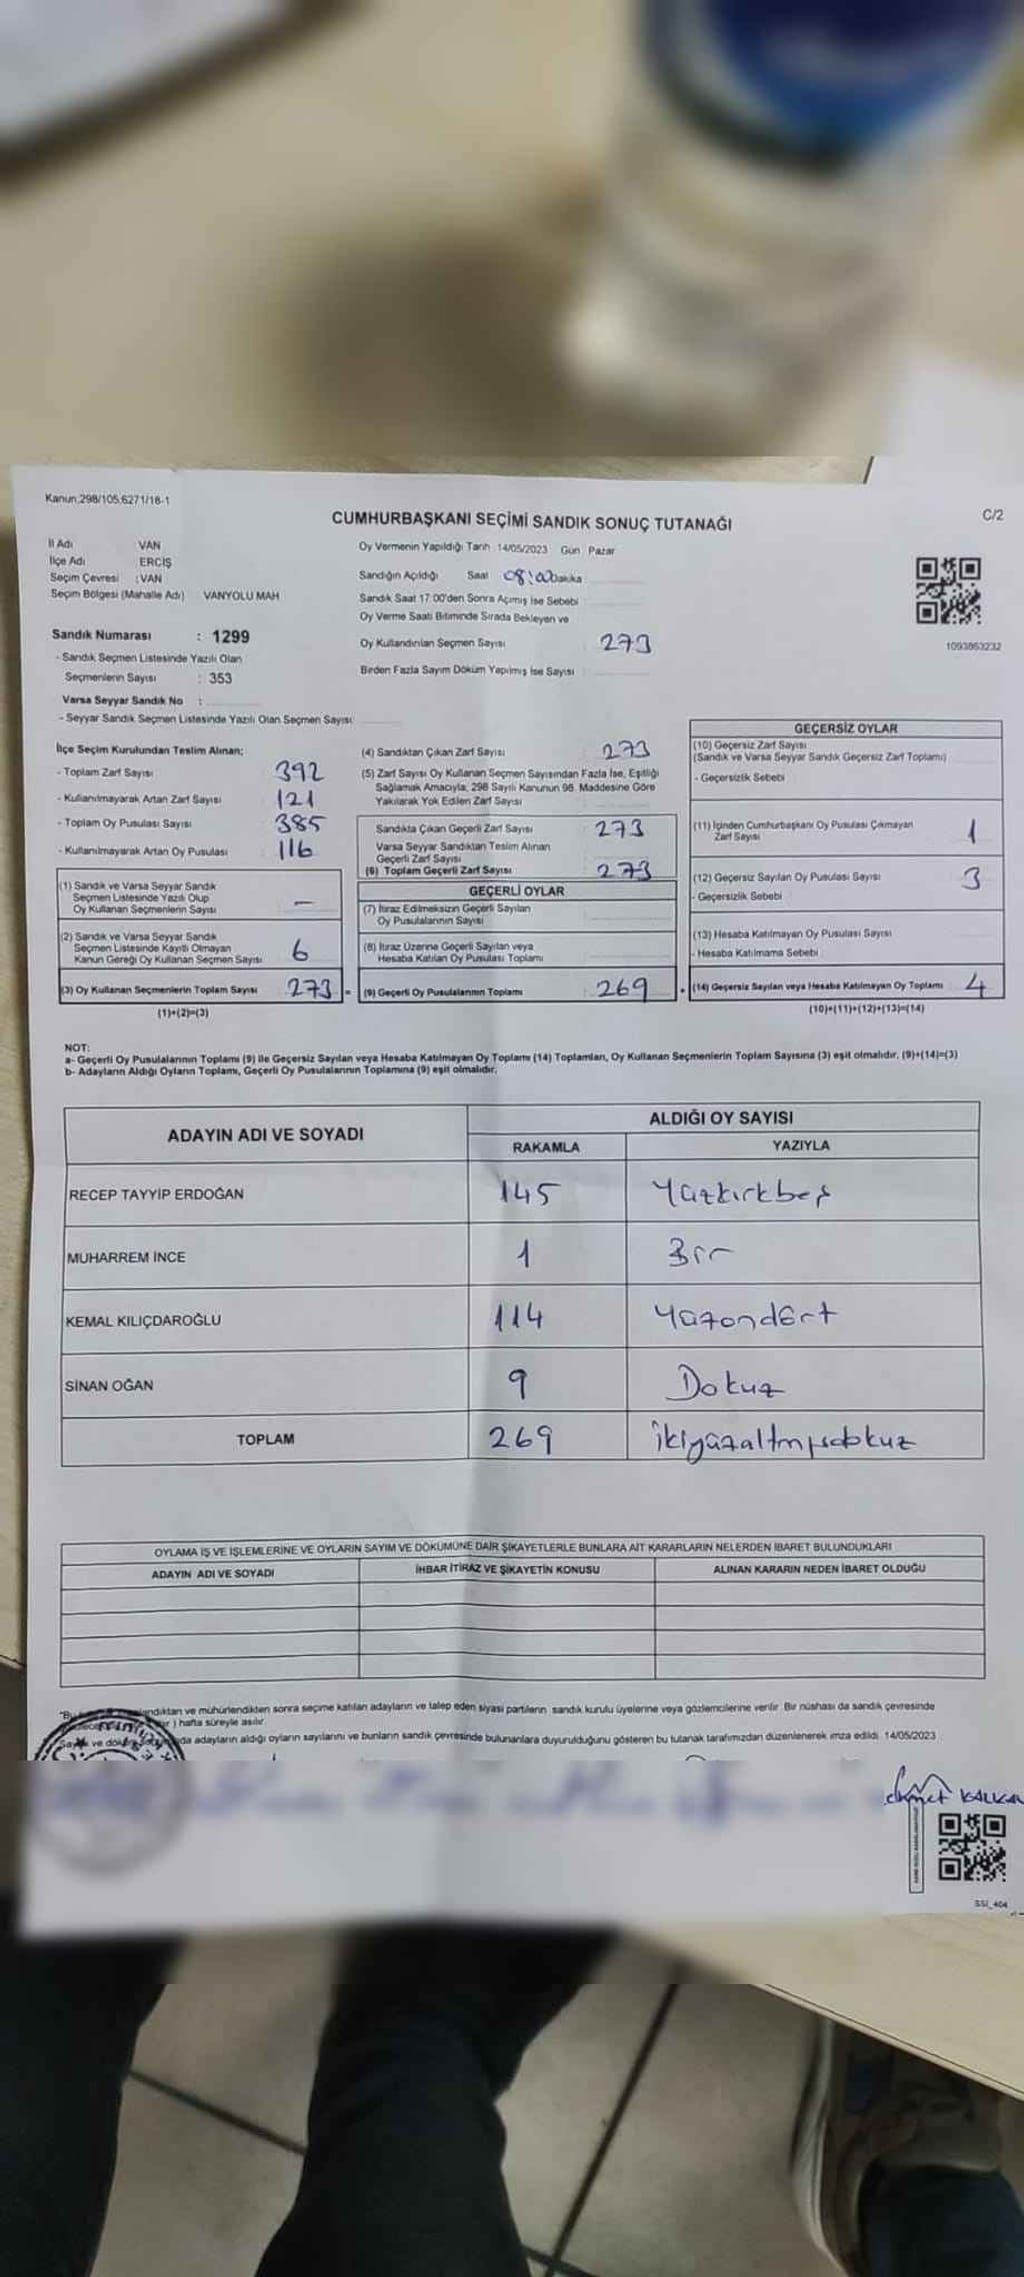 Kanun.298/105,6271/16-1
C/2
CUMHURBAŞKANI SEÇİMİ SANDIK SONUÇ TUTANAĞI
İl Adı VAN
İlçe Adı ERCİŞ
Seçim Çevresi : VAN
Seçim Bölgesi (Mahalle Adı) VANYOLU MAH
Sandık Numarası : 1299
- Sandık Seçmen Listesinde Yazılı Olan
Seçmenlerin Sayısı : 353
Varsa Seyyar Sandık No :
- Seyyar Sandık Seçmen Listesinde Yazılı Olan Seçmen Sayısı
Oy Vermenin Yapıldığı Tarih 14/05/2023 Gün Pazar
Sandığın Açıldığı Saat 08:00 Dakika
Sandık Saat 17:00'den Sonra Açımış İse Sebebi
Oy Verme Saati Bitiminde Sırada Bekleyen ve
Oy Kullandırılan Seçmen Sayısı 273
Birden Fazla Sayım Döküm Yapılmış İse Sayısı
1093863232
İlçe Seçim Kurulundan Teslim Alınan;
- Toplam Zarf Sayısı 392
- Kullanılmayarak Artan Zarf Sayısı 121
- Toplam Oy Pusulası Sayısı 385
- Kullanılmayarak Artan Oy Pusulası 116
(1) Sandık ve Varsa Seyyar Sandık
Seçmen Listesinde Yazılı Olup
Oy Kullanan Seçmenlerin Sayısı –
(2) Sandık ve Varsa Seyyar Sandık
Seçmen Listesinde Kayıtlı Olmayan
Kanun Gereği Oy Kullanan Seçmen Sayısı 6
(3) Oy Kullanan Seçmenlerin Toplam Sayısı 273
(1)+(2)=(3)
(4) Sandıktan Çıkan Zarf Sayısı 273
(5) Zarf Sayısı Oy Kullanan Seçmen Sayısından Fazla İse, Eşitliği
Sağlamak Amacıyla, 298 Sayılı Kanunun 98. Maddesine Göre
Yakılarak Yok Edilen Zarf Sayısı
Sandıkta Çıkan Geçerli Zarf Sayısı 273
Varsa Seyyar Sandıktan Teslim Alınan
Geçerli Zarf Sayısı
(6) Toplam Geçerli Zarf Sayısı 273
GEÇERLİ OYLAR
(7) İtiraz Edilmeksizin Geçerli Sayılan
Oy Pusulalarının Sayısı
(8) İtiraz Üzerine Geçerli Sayılan veya
Hesaba Katılan Oy Pusulası Toplamı
= (9) Geçerli Oy Pusulalarının Toplamı 269
GEÇERSİZ OYLAR
(10) Geçersiz Zarf Sayısı
(Sandık ve Varsa Seyyar Sandık Geçersiz Zarf Toplamı)
- Geçersizlik Sebebi
(11) İçinden Cumhurbaşkanı Oy Pusulası Çıkmayan
Zarf Sayısı 1
(12) Geçersiz Sayılan Oy Pusulası Sayısı 3
- Geçersizlik Sebebi
(13) Hesaba Katılmayan Oy Pusulası Sayısı
- Hesaba Katılmama Sebebi
+ (14) Geçersiz Sayılan veya Hesaba Katılmayan Oy Toplamı 4
(10)+(11)+(12)+(13)=(14)
NOT:
a- Geçerli Oy Pusulalarının Toplamı (9) ile Geçersiz Sayılan veya Hesaba Katılmayan Oy Toplamı (14) Toplamları, Oy Kullanan Seçmenlerin Toplam Sayısına (3) eşit olmalıdır. (9)+(14)=(3)
b- Adayların Aldığı Oyların Toplamı, Geçerli Oy Pusulalarının Toplamına (9) eşit olmalıdır.
ADAYIN ADI VE SOYADI
ALDIĞI OY SAYISI
RAKAMLA YAZIYLA
RECEP TAYYİP ERDOĞAN 145 Yüzkırkbeş
MUHARREM İNCE 1 Bir
KEMAL KILIÇDAROĞLU 114 Yüzondört
SİNAN OĞAN 9 Dokuz
TOPLAM 269 ikiyüzaltmışdokuz
OYLAMA İŞ VE İŞLEMLERİNE VE OYLARIN SAYIM VE DÖKÜMÜNE DAİR ŞİKAYETLERLE BUNLARA AİT KARARLARIN NELERDEN İBARET BULUNDUKLARI
ADAYIN ADI VE SOYADI İHBAR İTİRAZ VE ŞİKAYETİN KONUSU ALINAN KARARIN NEDEN İBARET OLDUĞU
"Bu andıktan ve mühürlendikten sonra seçime katılan adayların ve talep eden siyasi partilerin sandık kurulu üyelerine veya gözlemcilerine verilir. Bir nüshası da sandık çevresinde
) hafta süreyle asılır.
Sayım ve döküm da adayların aldığı oyların sayılarını ve bunların sandık çevresinde bulunanlara duyurulduğunu gösteren bu tutanak tarafımızdan düzenlenerek imza edildi. 14/05/2023
SSI_404